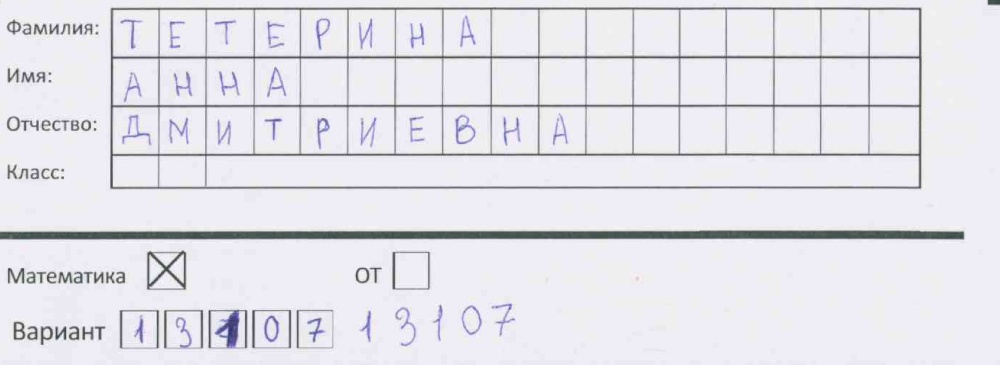 Фамилия: ТЕТЕРИНА
Имя: АННА
Отчество: ДМИТРИЕВНА
Класс:
Математика ОТ
Вариант 13107 13107